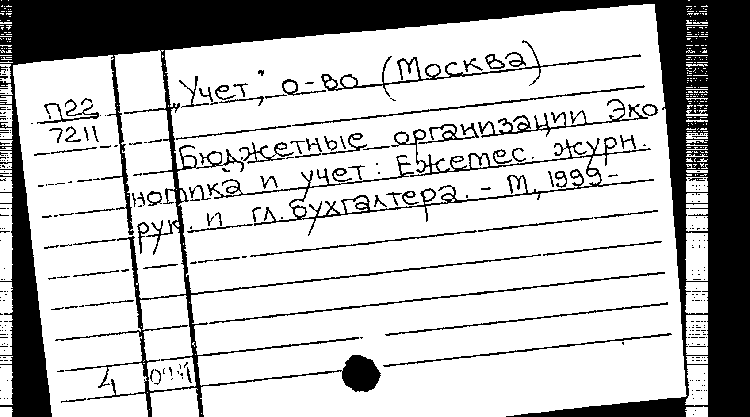 „Учет“, о-во (Москва)
П22
7211
Бюджетные организации Эко-
номика и учет: Ежемес. журн.
рук. и гл. бухгалтера. - М., 1999-
4